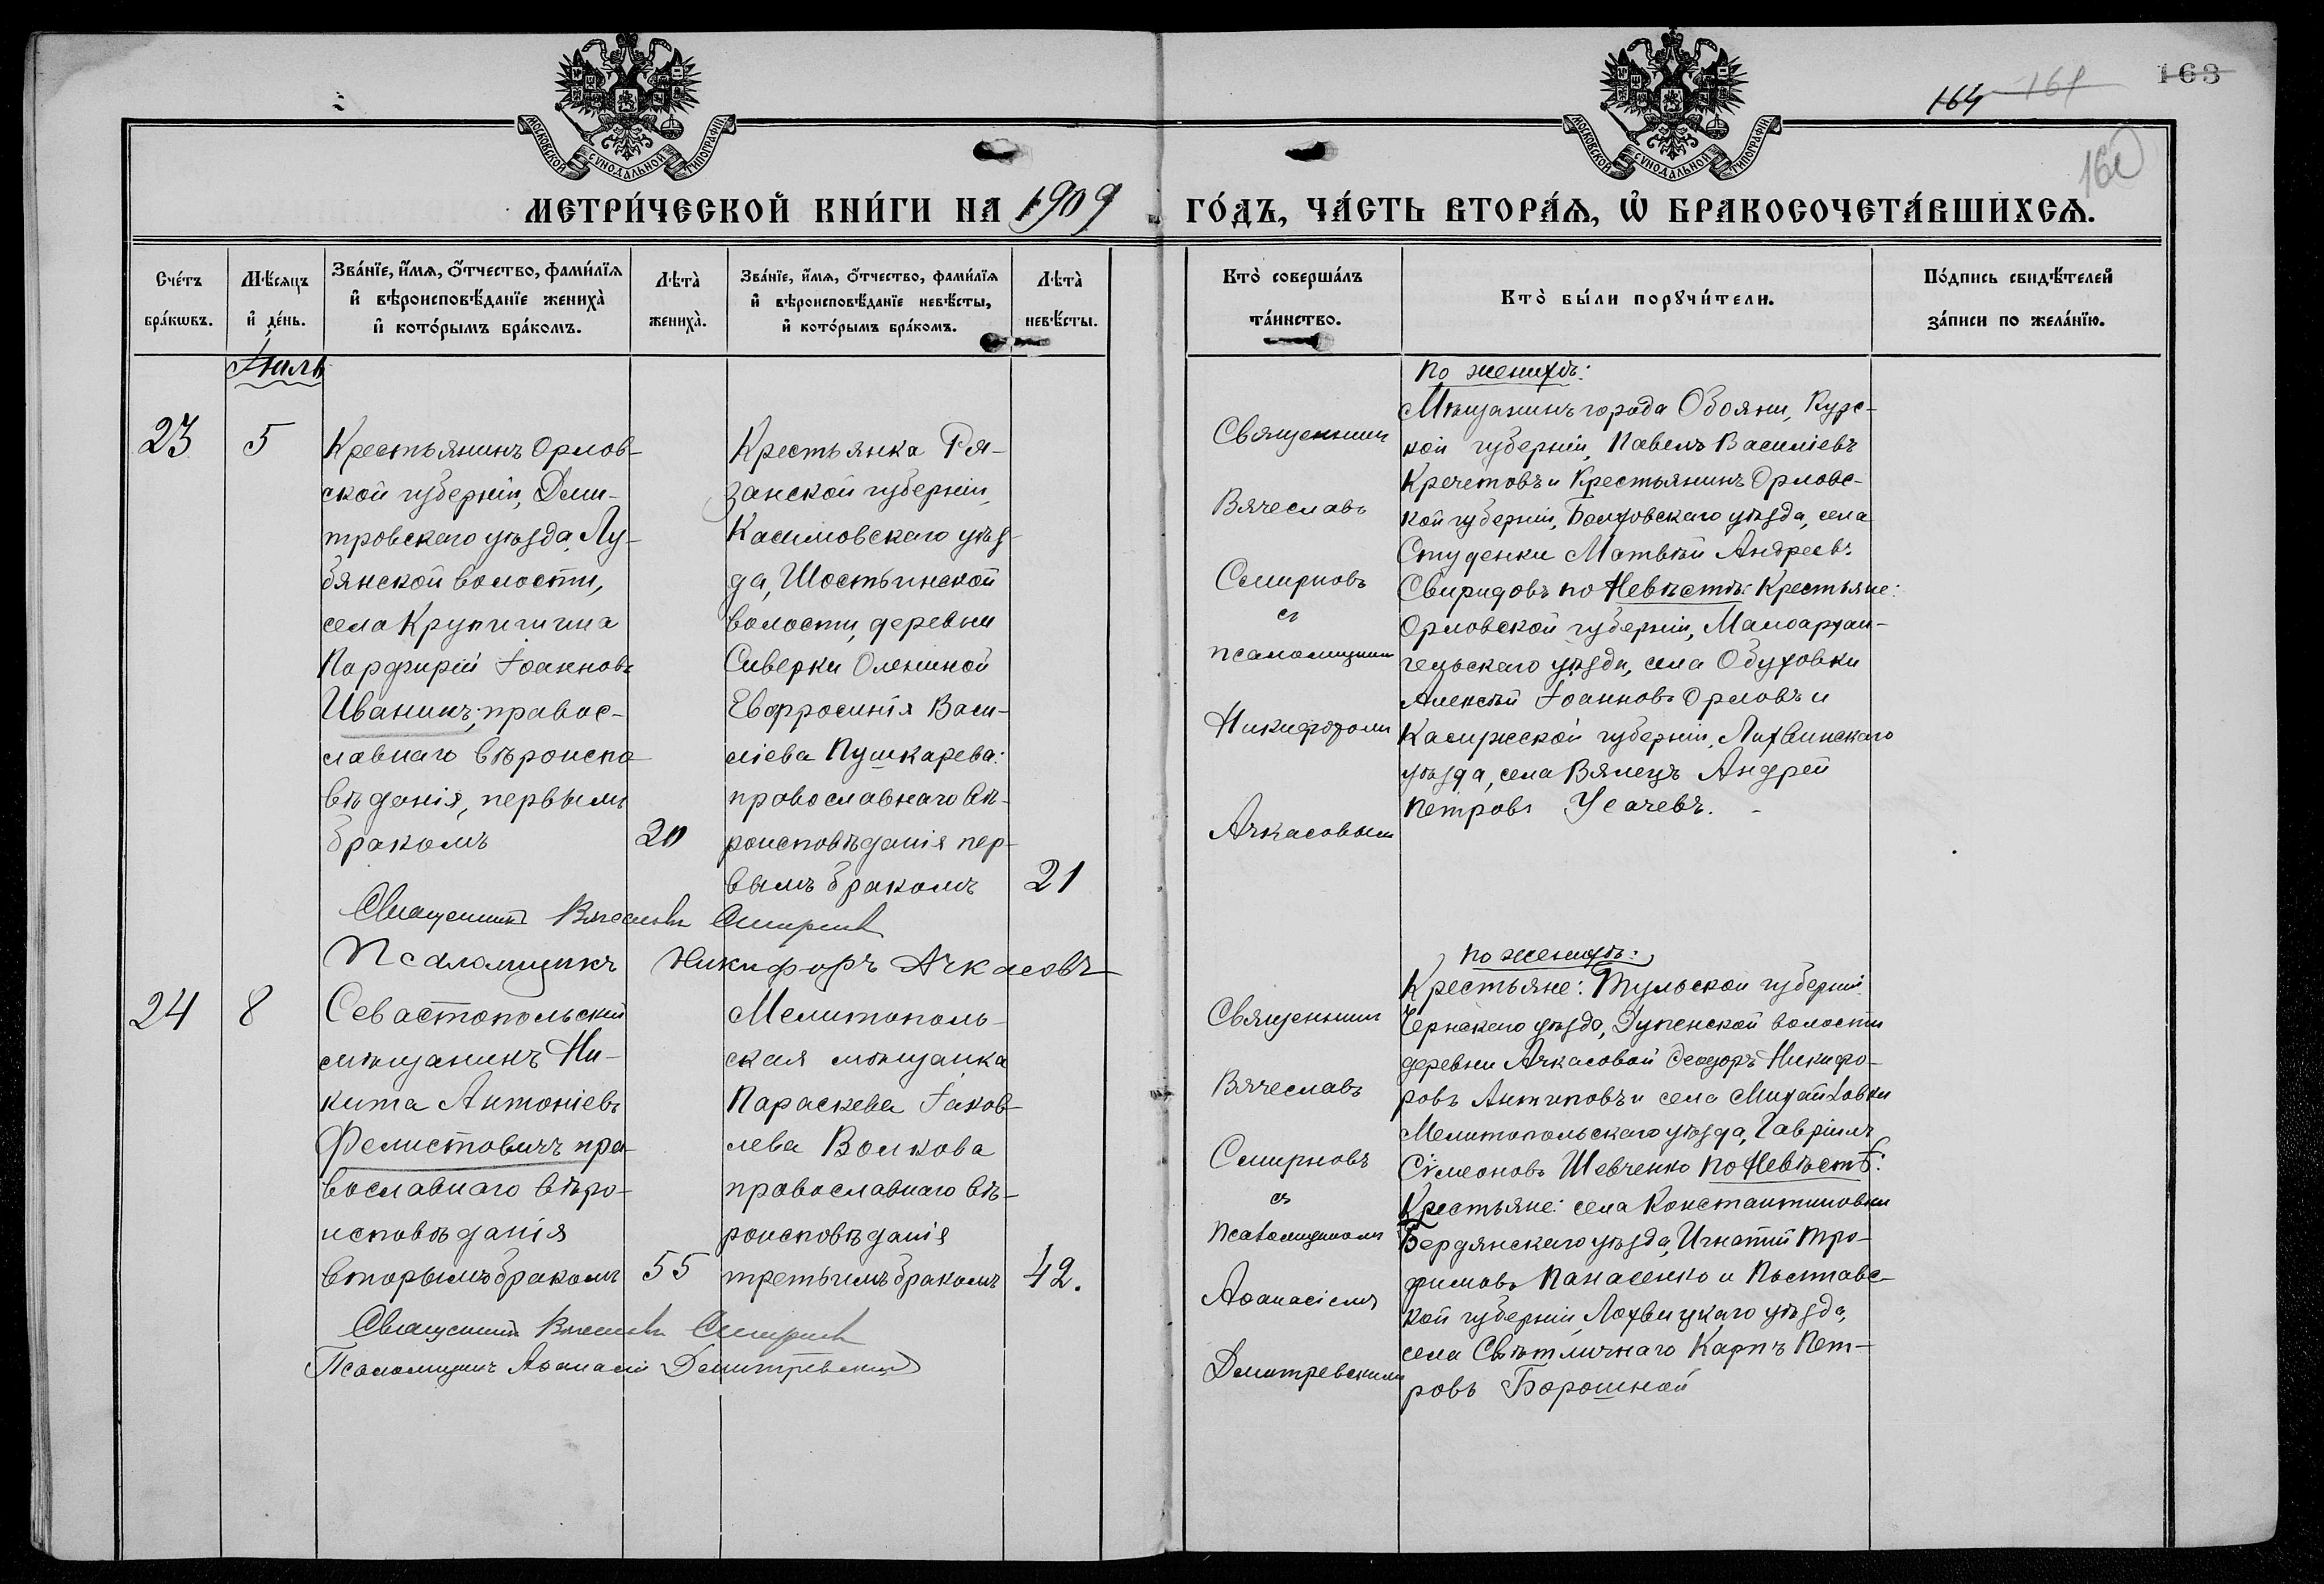 163
164 161
160
МОСКОВСКОЙ СѴНОДАЛЬНОЙ ТИПОГРАФІИ
МОСКОВСКОЙ СѴНОДАЛЬНОЙ ТИПОГРАФІИ
МЕТРИ́ЧЕСКОЙ КНИ́ГИ НА 1909 ГО́ДЪ, ЧА́СТЬ ВТОРА́Ѧ, Ѽ БРАКОСОЧЕТА́ВШИХСѦ.
Сче́тъ бра́кѡвъ.
Мѣ́сяцъ и҆ де́нь.
Зва́нїе, и҆́мѧ, ѻ҆́тчество, фами́лїѧ
и҆ вѣроисповѣ́данїе жениха̀
и҆ кото́рымъ бра́комъ.
Лѣта̀ жениха̀.
Зва́нїе, и҆́мѧ, ѻ҆́тчество, фами́лїѧ
и҆ вѣроисповѣ́данїе невѣ́сты,
и҆ кото́рымъ бра́комъ.
Лѣта̀ невѣ́сты.
Кто̀ соверша́лъ та́инство.
Кто̀ бы́ли порꙋчи́тели.
По́дпись свидѣ́телей за́писи по жела́нїю.
Іюль
23
5
Крестьянинъ Орлов-
ской губерніи, Дми-
тровскаго уѣзда, Лу-
бянской волости,
села Крупышина
Порфирій Іоанновъ
Иванинъ; правос-
лавнаго вѣроиспо-
вѣданія, первымъ
бракомъ
20
Крестьянка Ря-
занской губерніи,
Касимовскаго уѣз-
да, Шостьинской
волости, деревни
Сиверки Олениной
Евфросинія Васи-
ліева Пушкарева:
православнаго вѣ-
роисповѣданія пер-
вымъ бракомъ
21
Священникъ Вячеславъ Смирновъ
Псаломщикъ Никифоръ Ачкасовъ
Священник
Вячеславъ
Смирновъ
съ
псаломщиком
Никифором
Ачкасовым
По женихѣ:
Мѣщанинъ города Обояни, Курс-
кой губерніи, Павелъ Василіевъ
Кречетовъ и Крестьянинъ Орловс-
кой губерніи, Болховскаго уѣзда, села
Студенки Матвѣй Андреевъ
Свиридовъ по Невѣстѣ: Крестьяне:
Орловской губерніи, Малоархан-
гельскаго уѣзда, села Обуховки
Алексѣй Іоанновъ Орловъ и
Калужской губерніи, Лихвинскаго
уѣзда, села Вялецъ Андрей
Петровъ Усачевъ.
24
8
Севастопольскій
мѣщанинъ Ни-
кита Антоніевъ
Фелистовичъ пра-
вославнаго вѣро-
исповѣданія
вторымъ бракомъ
55
Мелитополь-
ская мѣщанка
Параскева Іаков-
лева Волкова
православнаго вѣ-
роисповѣданія
третьимъ бракомъ
42.
Священникъ Вячеславъ Смирновъ
Псаломщикъ Аѳанасій Дмитревскій
Священник
Вячеславъ
Смирновъ
съ
псаломщиком
Аѳанасіемъ
Дмитревским
по женихѣ:
Крестьяне: Тульской губерніи
Чернскаго уѣзда, волости
деревни Ачкасовой Ѳеодоръ Никифо-
ровъ Антиповъ и села Михайловки
Мелитопольскаго уѣзда, Гавріилъ
Сѵмеоновъ Шевченко по Невѣстѣ:
Крестьяне: села Константиновки
Бердянскаго уѣзда, Игнатій Тро-
фимовъ Панасенко и Полтавс-
кой губерніи, Лохвицкаго уѣзда,
села Свѣтличнаго Карпъ Пет-
ровъ Борошной